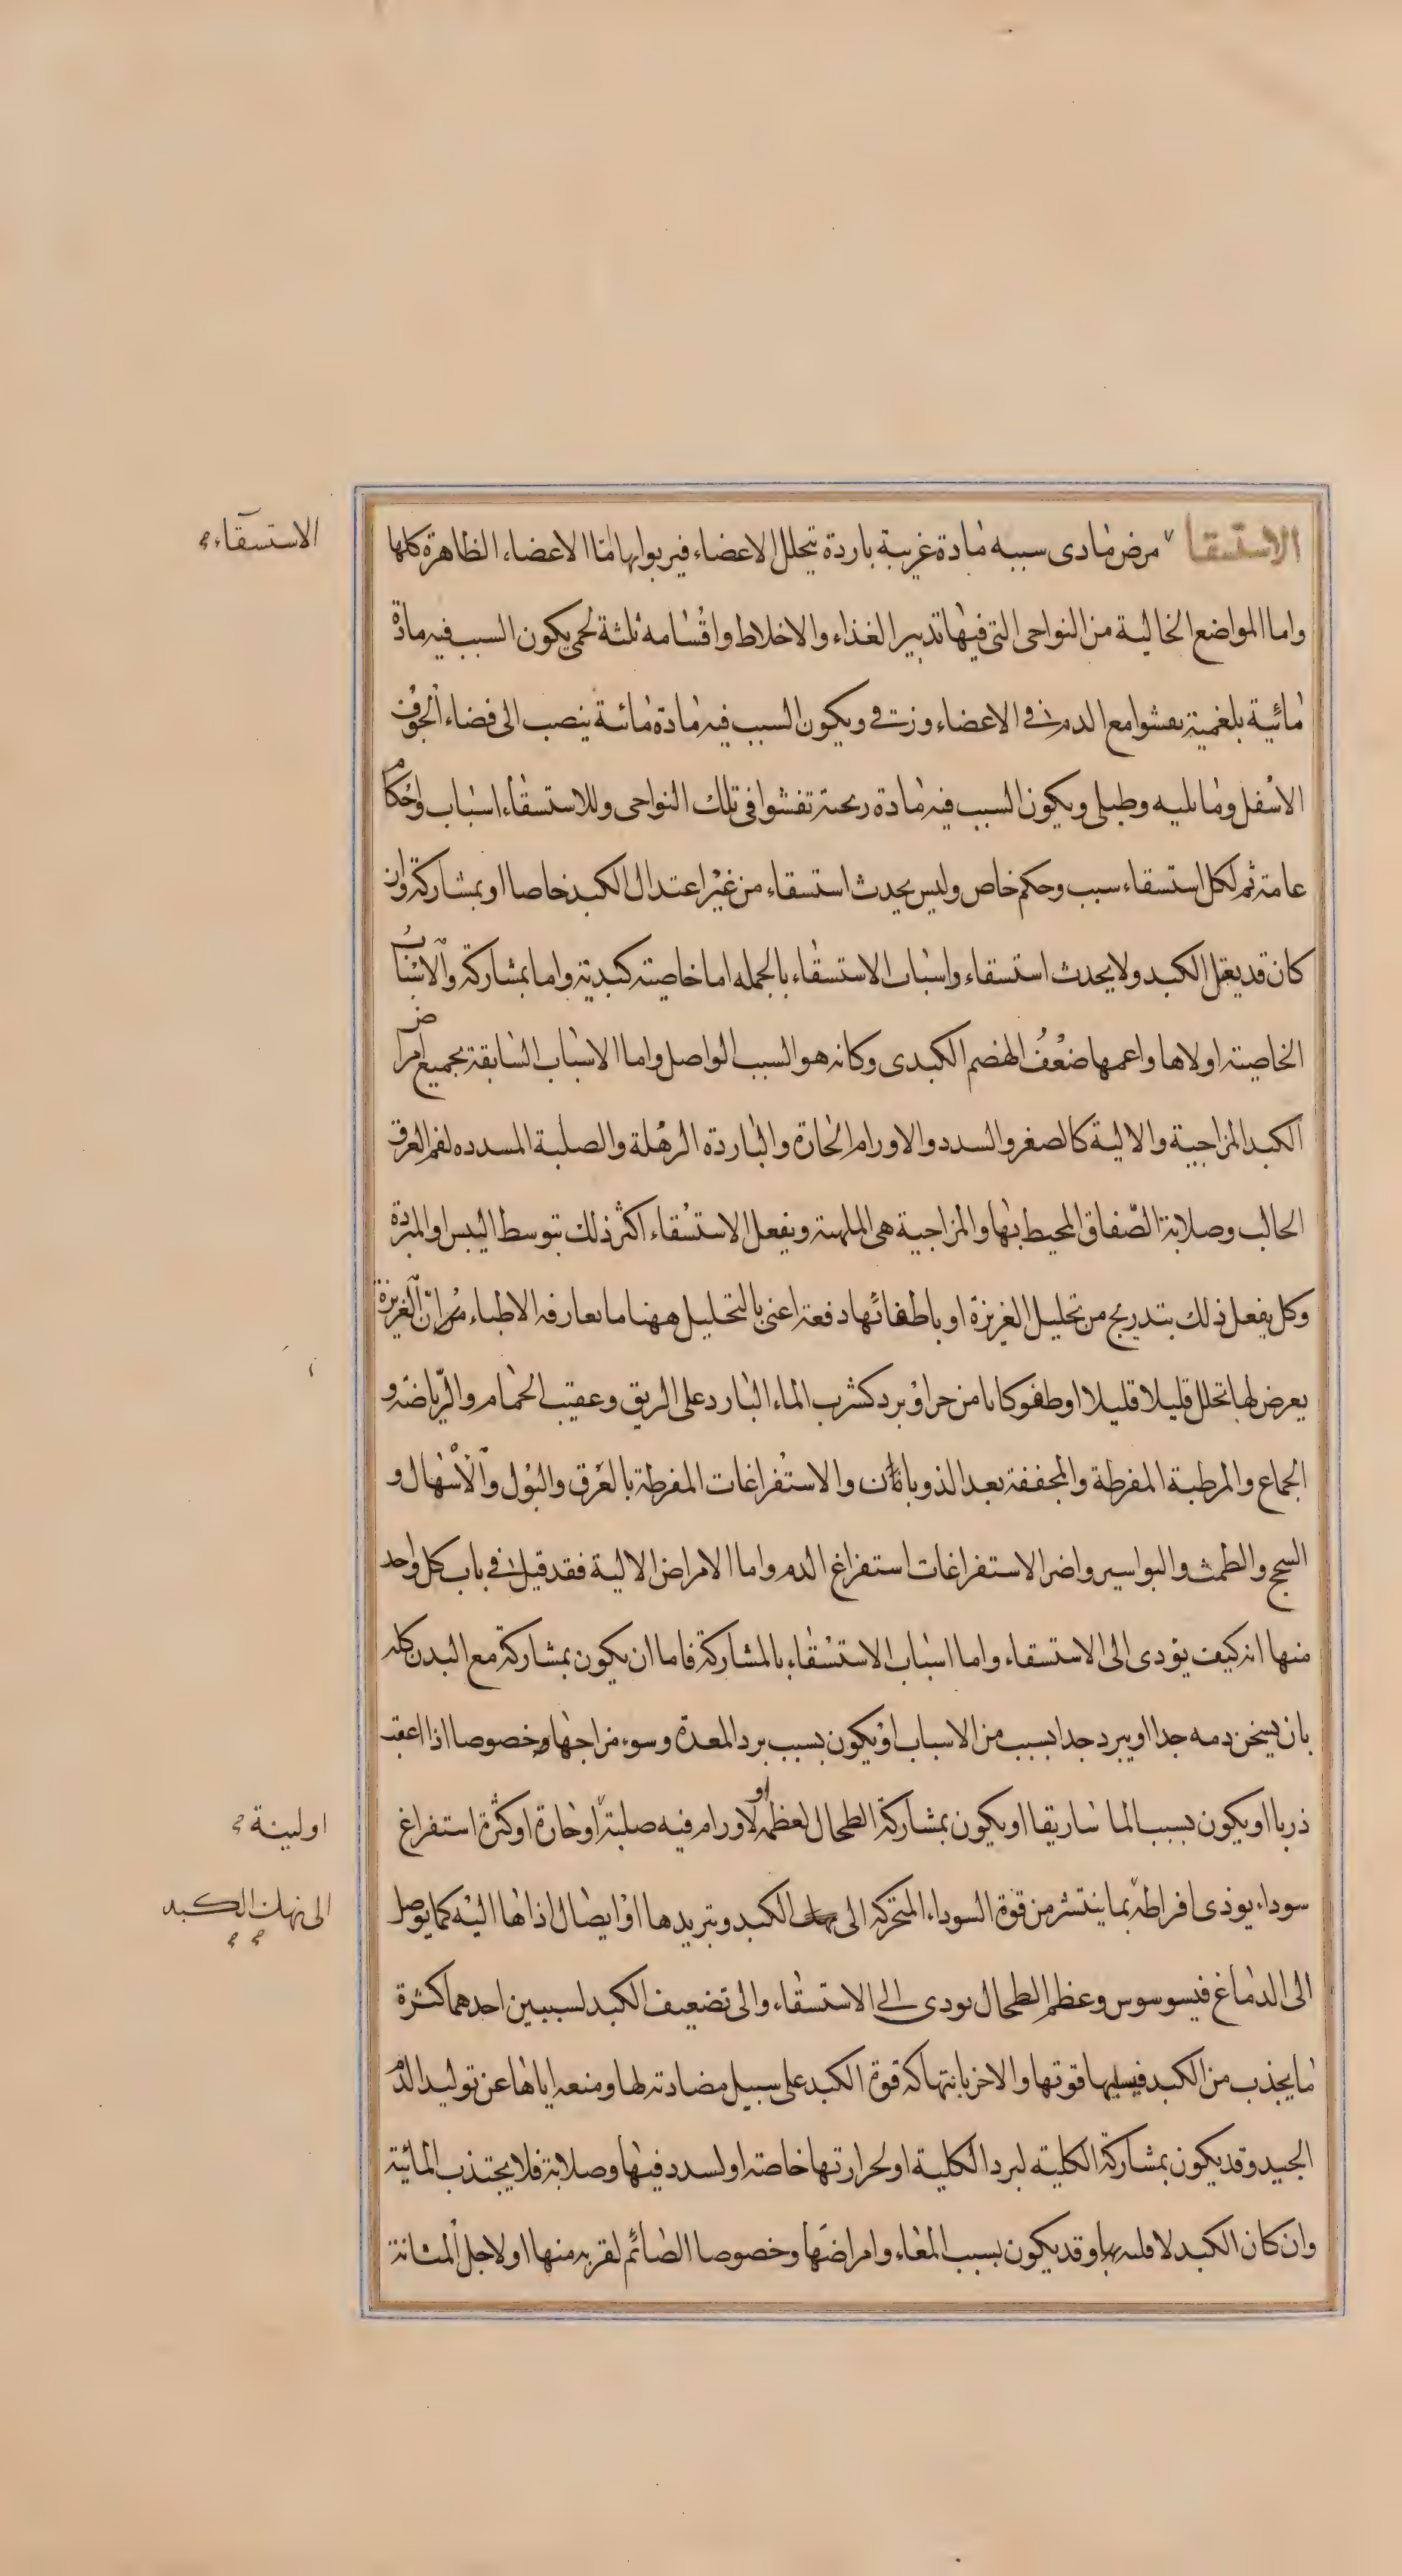 الاستسقا مرض مادى سببه مادة غريبة باردة يتخلل الاعضاء فيربوا بها اما الاعضاء الظاهرة كلها
الاستسقاء
واما المواضع الخالية من النواحى التى فيها تدبير الغذاء والاخلاط واقسامه ثلثة لحمى يكون السبب فيه مادة
مائية بلغمية يفشوا مع الدم فى الاعضاء وزقى ويكون السبب فيه مادة مائية ينصب الى فضاء الجوف
الاسفل وما يليه وطبلى ويكون السبب فيه مادة ريحية تفشوا فى تلك النواحى وللاستسقاء اسباب واحكام
عامة ثم لكل استسقاء سبب وحكم خاص وليس يحدث استسقاء من غير اعتدال الكبد خاصا او بمشاركة وان
كان قد يعتل الكبد ولا يحدث استسقاء واسباب الاستسقاء بالجمله اما خاصية كبدية واما بمشاركة والاسباب
الخاصية اولاها واعمها ضعف الهضم الكبدى وكانه هو السبب الواصل واما الاسباب السابقة بجميع امراض
الكبد المزاجية والالية كالصغر والسدد والاورام الحارة والباردة الرهلة والصلبة المسدده لفم العرق
الحالب وصلابة الصفاق المحيط بها والمزاجية هى الملهبة ويفعل الاستسقاء اكثر ذلك بتوسط اليبس او المبردة
وكل يفعل ذلك بتدريج من تحليل الغريزة او باطفائها دفعة اعنى بالتحليل ههنا ما تعارفه الاطباء من ان الغريزة
يعرض لها تحلل قليلا قليلا او طفو كانا من حر او برد كشرب الماء البارد على الريق وعقيب الحمام والرياضة و
الجماع والمرطبة المفرطة والمجففة بعد الذوبانات والاستفراغات المفرطة بالعرق والبول والاسهال و
السحج والطمث والبواسير واضر الاستفراغات استفراغ الدم واما الامراض الالية فقد قيل فى باب كل واحد
منها انه كيف يؤدى الى الاستسقاء واما اسباب الاستسقاء بالمشاركة فاما ان يكون بمشاركة مع البدن كله
بان يسخن دمه جدا او يبرد جدا بسبب من الاسباب او يكون بسبب برد المعدة وسوء مزاجها وخصوصا اذا اعقب
ذربا او يكون بسبب الماساريقا او يكون بمشاركة الطحال لعظمه او لاورام فيه صلبة او حارة او كثرة استفراغ
او لينة
سوداء يوذى افراطه بما ينتشر من قوة السوداء المتحركه الى الكبد وتبريدها او ايصال اذاها اليه كما يوصل
الى نهك الكبد
الى الدماغ فيسوسوس وعظم الطحال يودى الى الاستسقاء والى تضعيف الكبد لسببين احدهما كثرة
ما يجذب من الكبد فيسلبها قوتها والاخر بانتهاكه قوة الكبد على سبيل مضادته لها ومنعه اياها عن توليد الدم
الجيد وقد يكون بمشاركة الكلية لبرد الكلية او لحرارتها خاصة او لسدد فيها وصلابة فلا يجتذب المائية
وان كان الكبد لا وقد يكون بسبب المعاء وامراضها وخصوصا الصائم لقربه منها او لاجل المثانة